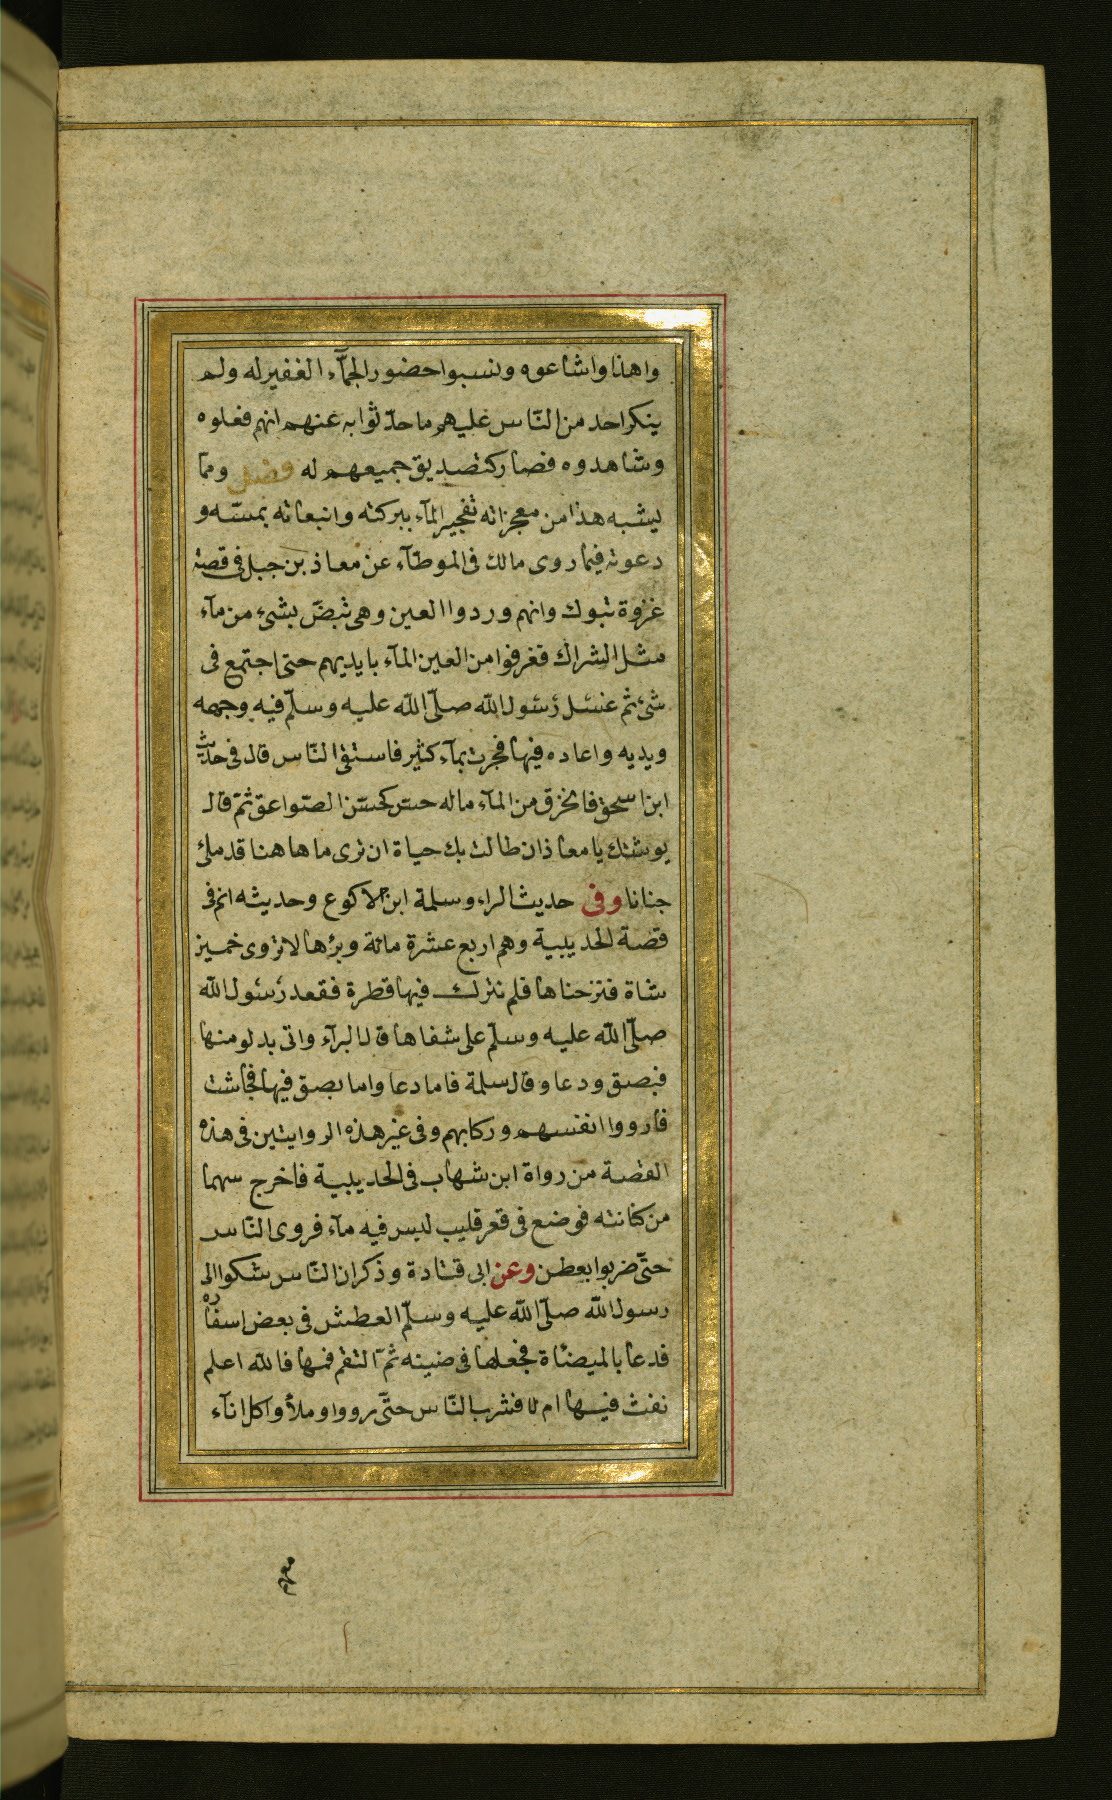 واهذا واشاعوه ونسبوا حضور الجمّآء الغفير له ولم
ينكر احد من النّاس عليهم ما حدّثوا به عنهم انهم فعلوه
وشاهدوه فصار كتصديق جميعهم له فصل ومما
يشبه هذا من معجزاته تفجير المآء ببركته وانبعاثه بمسّه و
دعوته فيما روى مالك فى الموطّآء عن معاذ بن جبل فى قصة
غزوة تبوك وانهم وردوا العين وهى تبضّ بشىء من مآء
مثل الشراك فغرفوا من العين المآء بايديهم حتى اجتمع فى
شىء ثم غسل رسول الله صلّى الله عليه وسلّم فيه وجهه
ويديه واعاده فيها فجرت بمآء كثير فاستقى النّاس قال فى حديث
ابن اسحق فانخرق من المآء ماله حسّ كحسّ الصّواعق ثمّ قال
يوشك يا معاذ ان طالت بك حياة ان ترى ما هاهنا قد ملئ
جنانا وفى حديث البراء وسلمة ابن الاكوع وحديثه اتم فى
قصة الحديبية وهم اربع عشرة مائة وبئرها لا تروى خمسين
شاة فنزحناها فلم نترك فيها قطرة فقعد رسول الله
صلّى الله عليه وسلّم على شفاها قال البرآء واتى بدلو منها
فبصق ودعا وقال سلمة فاما دعا واما بصق فيها فجاشت
فارووا انفسهم وركابهم وفى غير هذه الروايتين فى هذه
القصة من رواة ابن شهاب فى الحديبية فاخرج سهما
من كنانته فوضع فى قعر قليب ليس فيه مآء فروى النّاس
حتّى ضربوا بعطن وعن ابى قتادة وذكر ان النّاس شكوا الى
رسول الله صلّى الله عليه وسلّم العطش فى بعض اسفاره
فدعا بالميضأة فجعلها فى ضبنه ثمّ التقم فمها فالله اعلم
نفث فيها ام لا فشرب النّاس حتّى رووا وملأوا كل انآء
معهم